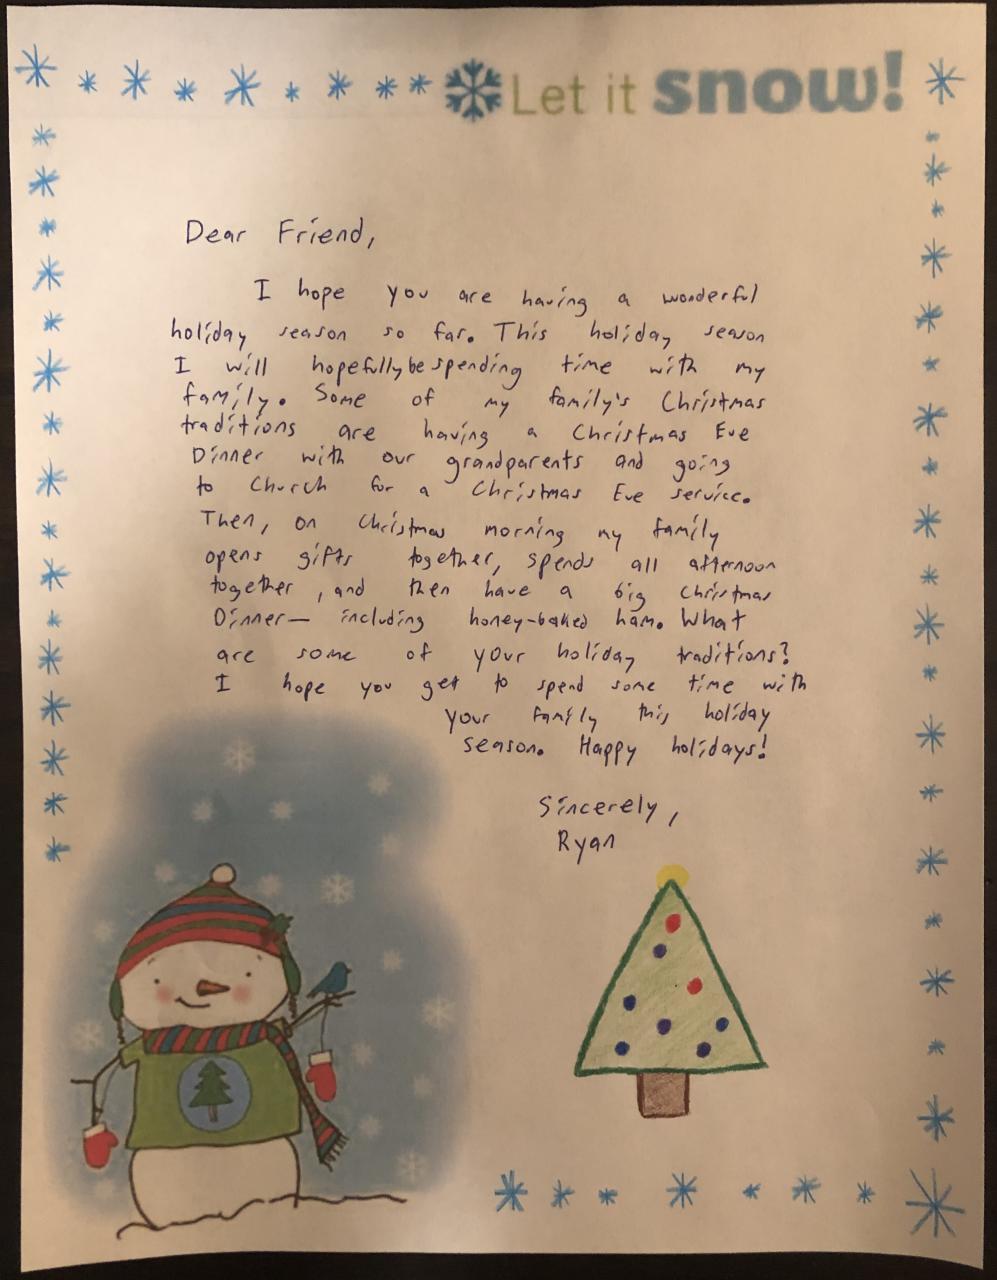 Let it snow!
Dear Friend,
I hope you are having a wonderful
holiday season so far. This holiday season
I will hopefully be spending time with my
family. Some of my family's Christmas
traditions are having a Christmas Eve
Dinner with our grandparents and going
to Church for a Christmas Eve service.
Then, on Christmas morning my family
opens gifts together, spends all afternoon
together, and then have a big Christmas
Dinner— including honey-baked ham. What
are some of your holiday traditions?
I hope you get to spend some time with
your family this holiday
season. Happy holidays!
Sincerely,
Ryan